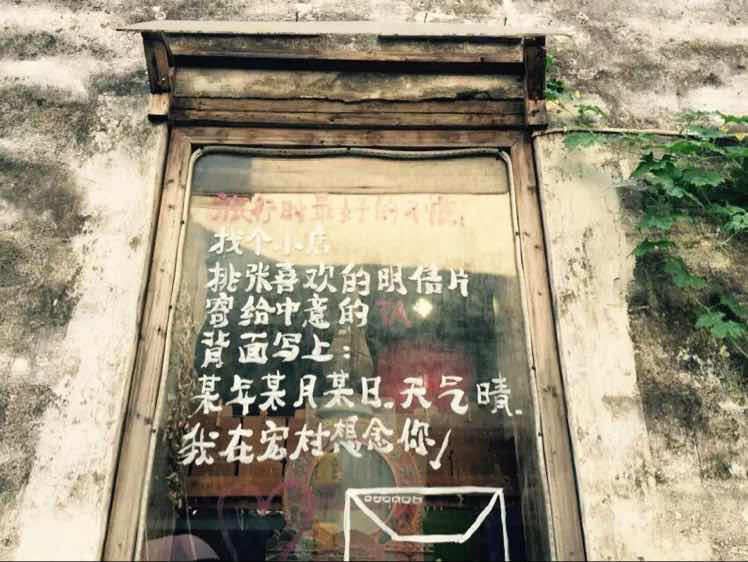 旅行时最好的习惯,
找个小店
挑张喜欢的明信片
寄给中意的TA
背面写上:
某年某月某日.天气晴.
我在宏村想念你!